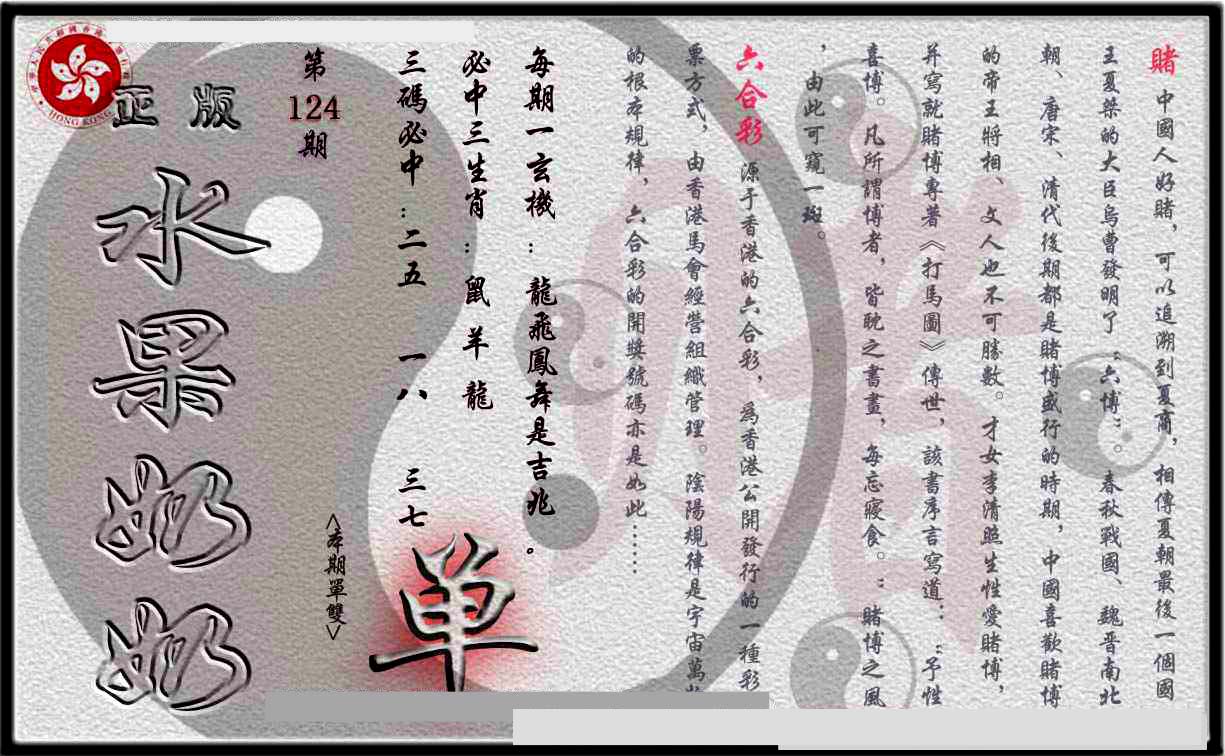 賭 中國人好賭，可以追溯到夏商，相傳夏朝最後一個國
王夏桀的大臣烏曹發明了“六博”。春秋戰國、魏晋南北
朝、唐宋、清代後期都是賭博盛行的時期，中國喜歡賭博
的帝王將相、文人也不可勝數。才女李清照生性愛賭博，
并寫就賭博專著《打馬圖》傳世，該書序言寫道：“予性
喜博。凡所謂博者，皆耽之書畫，每忘寢食。”賭博之風
，由此可窺一斑。
六合彩 源于香港的六合彩，爲香港公開發行的一種彩
票方式，由香港馬會經營組織管理。陰陽規律是宇宙萬物
的根本規律，六合彩的開獎號碼亦是如此……
每期一玄機：龍飛鳳舞是吉兆。
必中三生肖：鼠 羊 龍
三碼必中：二五 一八 三七
單
<本期單雙>
第
124
期
正版
水果奶奶
HONG KONG